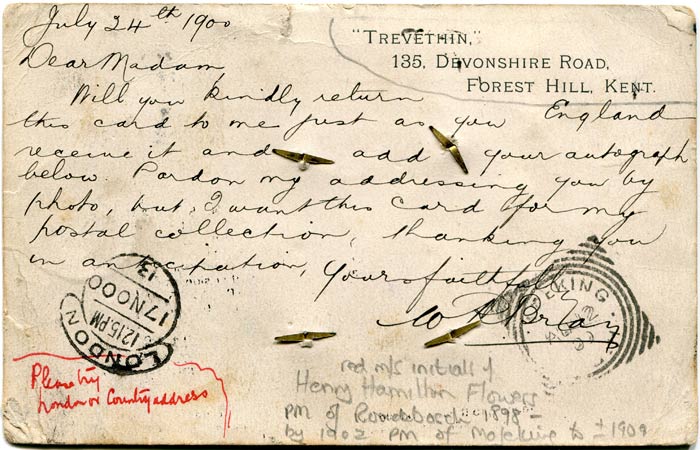 July 24th 1900
"TREVETHIN,"
135, DEVONSHIRE ROAD,
FOREST HILL, KENT.
England
Dear Madam,
Will you kindly return
this card to me just as you
receive it and add your autograph
below. Pardon my addressing you by
photo, but I want this card for my
postal collection, thanking you
in anticipation, Yours faithfully
W A
LONDON
12.15.PM
17 NO 00
13
EKING
Please try
London or County address
red m/s initials of
Henry Hamilton Flowers
PM of 1898 -
by 1902 PM of Mafeking to ± 1909